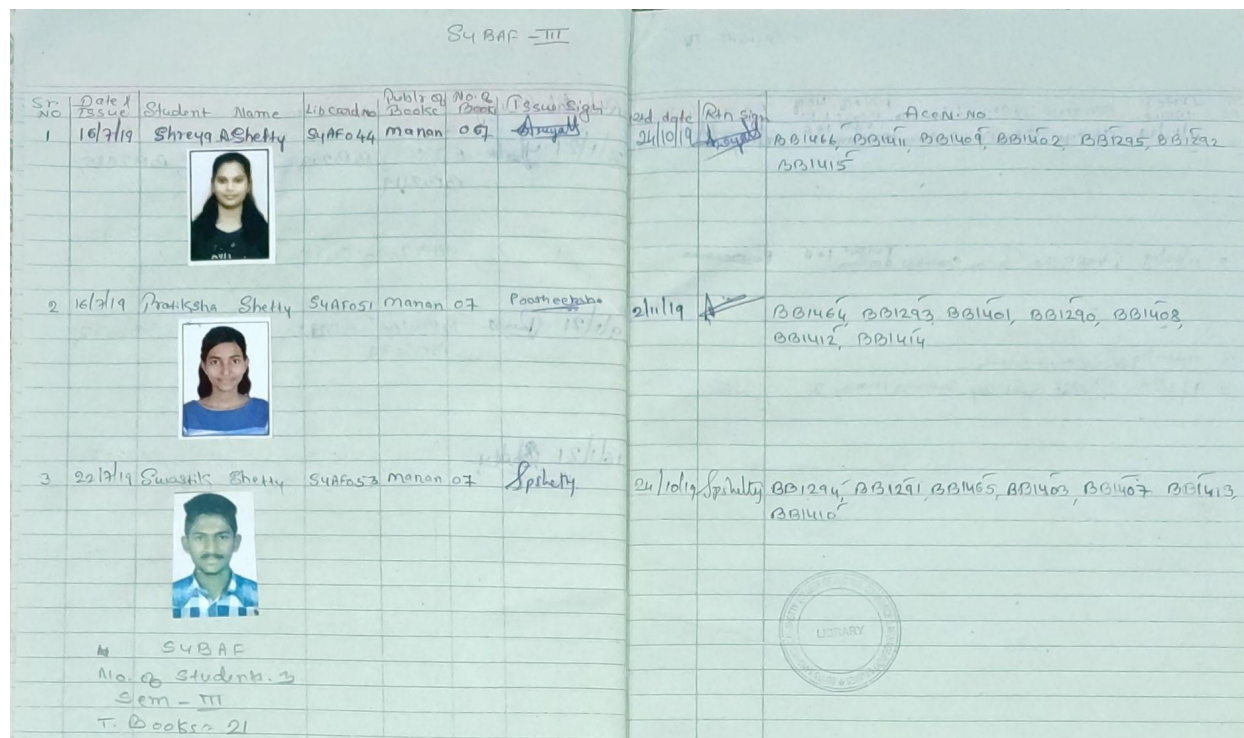 SYBAF - III
Sr. NO Date of Issue Student Name Lib card no Publr of Books No. of Book Issue Sign Rtd date Rtn Sign Accn. No
1 16/7/19 Shreya A Shetty SYAF044 Manan 07 24/10/19 BB1466, BB1411, BB1409, BB1402, BB1295, BB1292
BB1415
2 16/7/19 Pratiksha Shetty SYAF051 Manan 07 2/11/19 BB1464, BB1293, BB1401, BB1290, BB1408,
BB1412, BB1414
3 22/7/19 Swastik Shetty SYAF053 Manan 07 Spshetty 24/10/19 Spshetty BB1294, BB1291, BB1465, BB1403, BB1407 BB1413,
BB1410
LIBRARY
SYBAF
No. of Students. 3
Sem - III
T. Books = 21